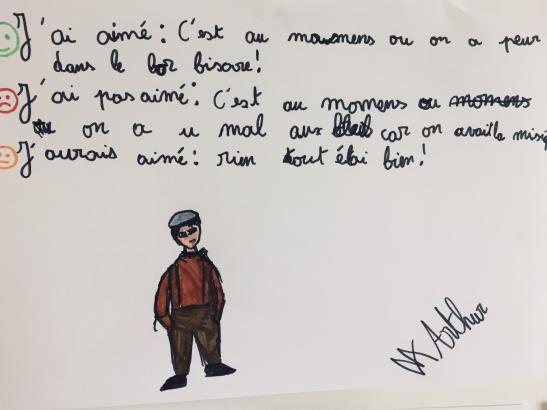 J'ai aimé : C'est au momens ou on a peur
dans le bar bisare !
J'ai pas aimé : C'est au momens ou momens
on a u mal aux car on avait la
J'aurais aimé : rien tout étai bien !
Arthur